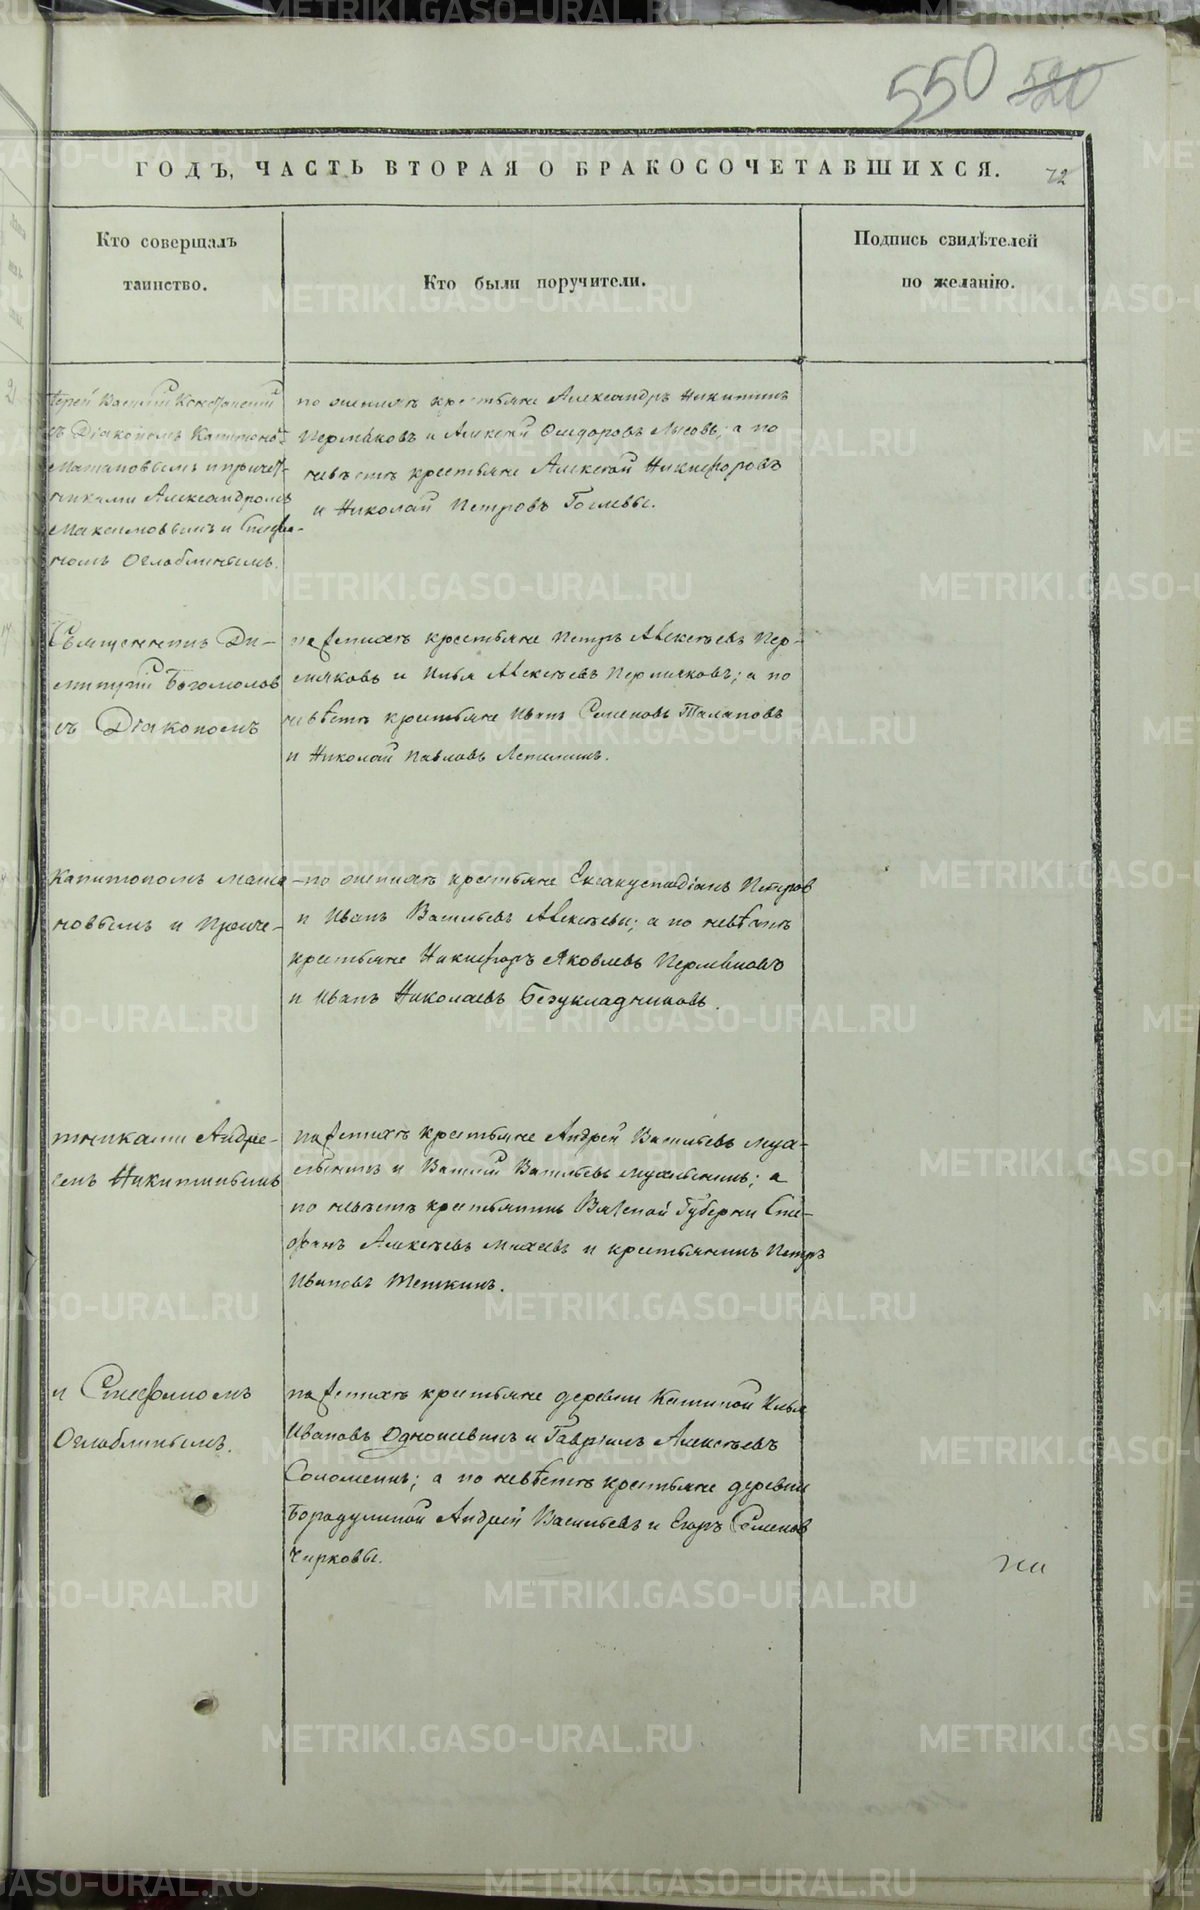 550 520
ГОДЪ, ЧАСТЬ ВТОРАЯ О БРАКОСОЧЕТАВШИХСЯ. 72
Кто совершалъ
таинство.
Кто были поручители.
Подпись свидѣтелей
по желанію.
Іерей Василій
съ Діакономъ Капитоно-
Матановымъ и причет-
никами Александромъ
Максимовымъ и Стефа-
номъ Оглоблинымъ.
по женихѣ крестьяне Александръ Никитинъ
Пермяковъ и Алексѣй Ѳедоровъ Лысовъ; а по
невѣстѣ крестьяне Алексѣй Никифоровъ
и Николай Петровъ Гоглевы.
Священникъ Ди-
митрій Богомолов
съ Діакономъ
по женихѣ крестьяне Петръ Алексѣевъ Пер-
мяковъ и Илья Алексѣевъ Пермяковъ; а по
невѣстѣ крестьяне Иванъ Семеновъ Талановъ
и Николай Павловъ Лепихинъ.
Капитономъ Мата-
новымъ и Приче-
по женихѣ крестьяне Екзакустодіанъ Петров
и Иванъ Васильевъ Алексѣевы; а по невѣстѣ
крестьяне Никифоръ Яковлевъ Пермяковъ
и Иванъ Николаевъ Безукладниковъ.
тниками Андре-
емъ Никитинымъ
по женихѣ крестьяне Андрей Васильевъ Муха-
и Василій Васильевъ; а
по невѣстѣ крестьянинъ Вятской Губерніи Сте-
фанъ Алексѣевъ Михеевъ и крестьянинъ Петръ
Ивановъ Теткинъ.
и Стефаномъ
Оглоблинымъ.
по женихѣ крестьяне деревни Илья
Ивановъ Одношевинъ и Гавріилъ Алексѣевъ
Соломеинъ; а по невѣстѣ крестьяне деревни
Бородулиной Андрей Васильевъ и Егоръ Семенов
Чирковы.